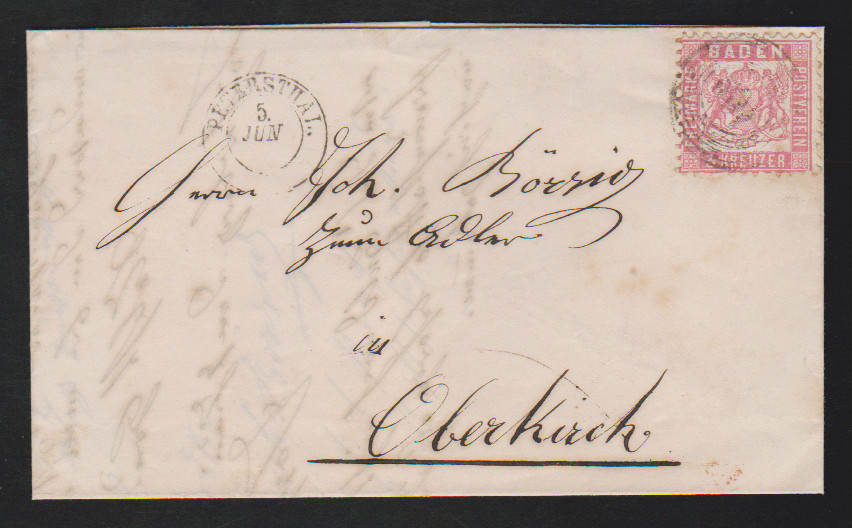 PETERSTHAL.
5.
JUN
BADEN
FREIMARKE
POSTVEREIN
KREUZER
Herrn Joh. Börsig
zum Adler
in
Oberkirch.